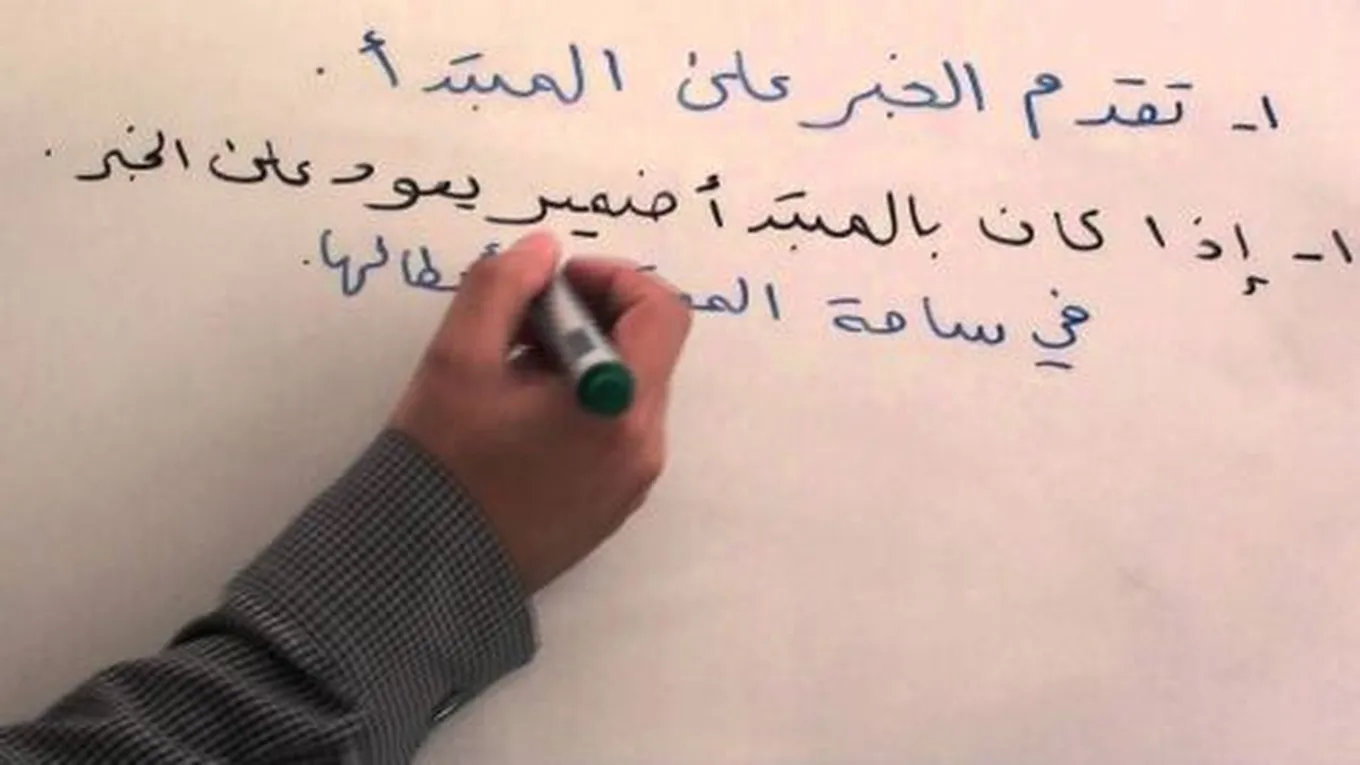 ١- تقدم الخبر على المبتدأ .
١- إذا كان بالمبتدأ ضمير يعود على الخبر .
في ساحة أبطالها .